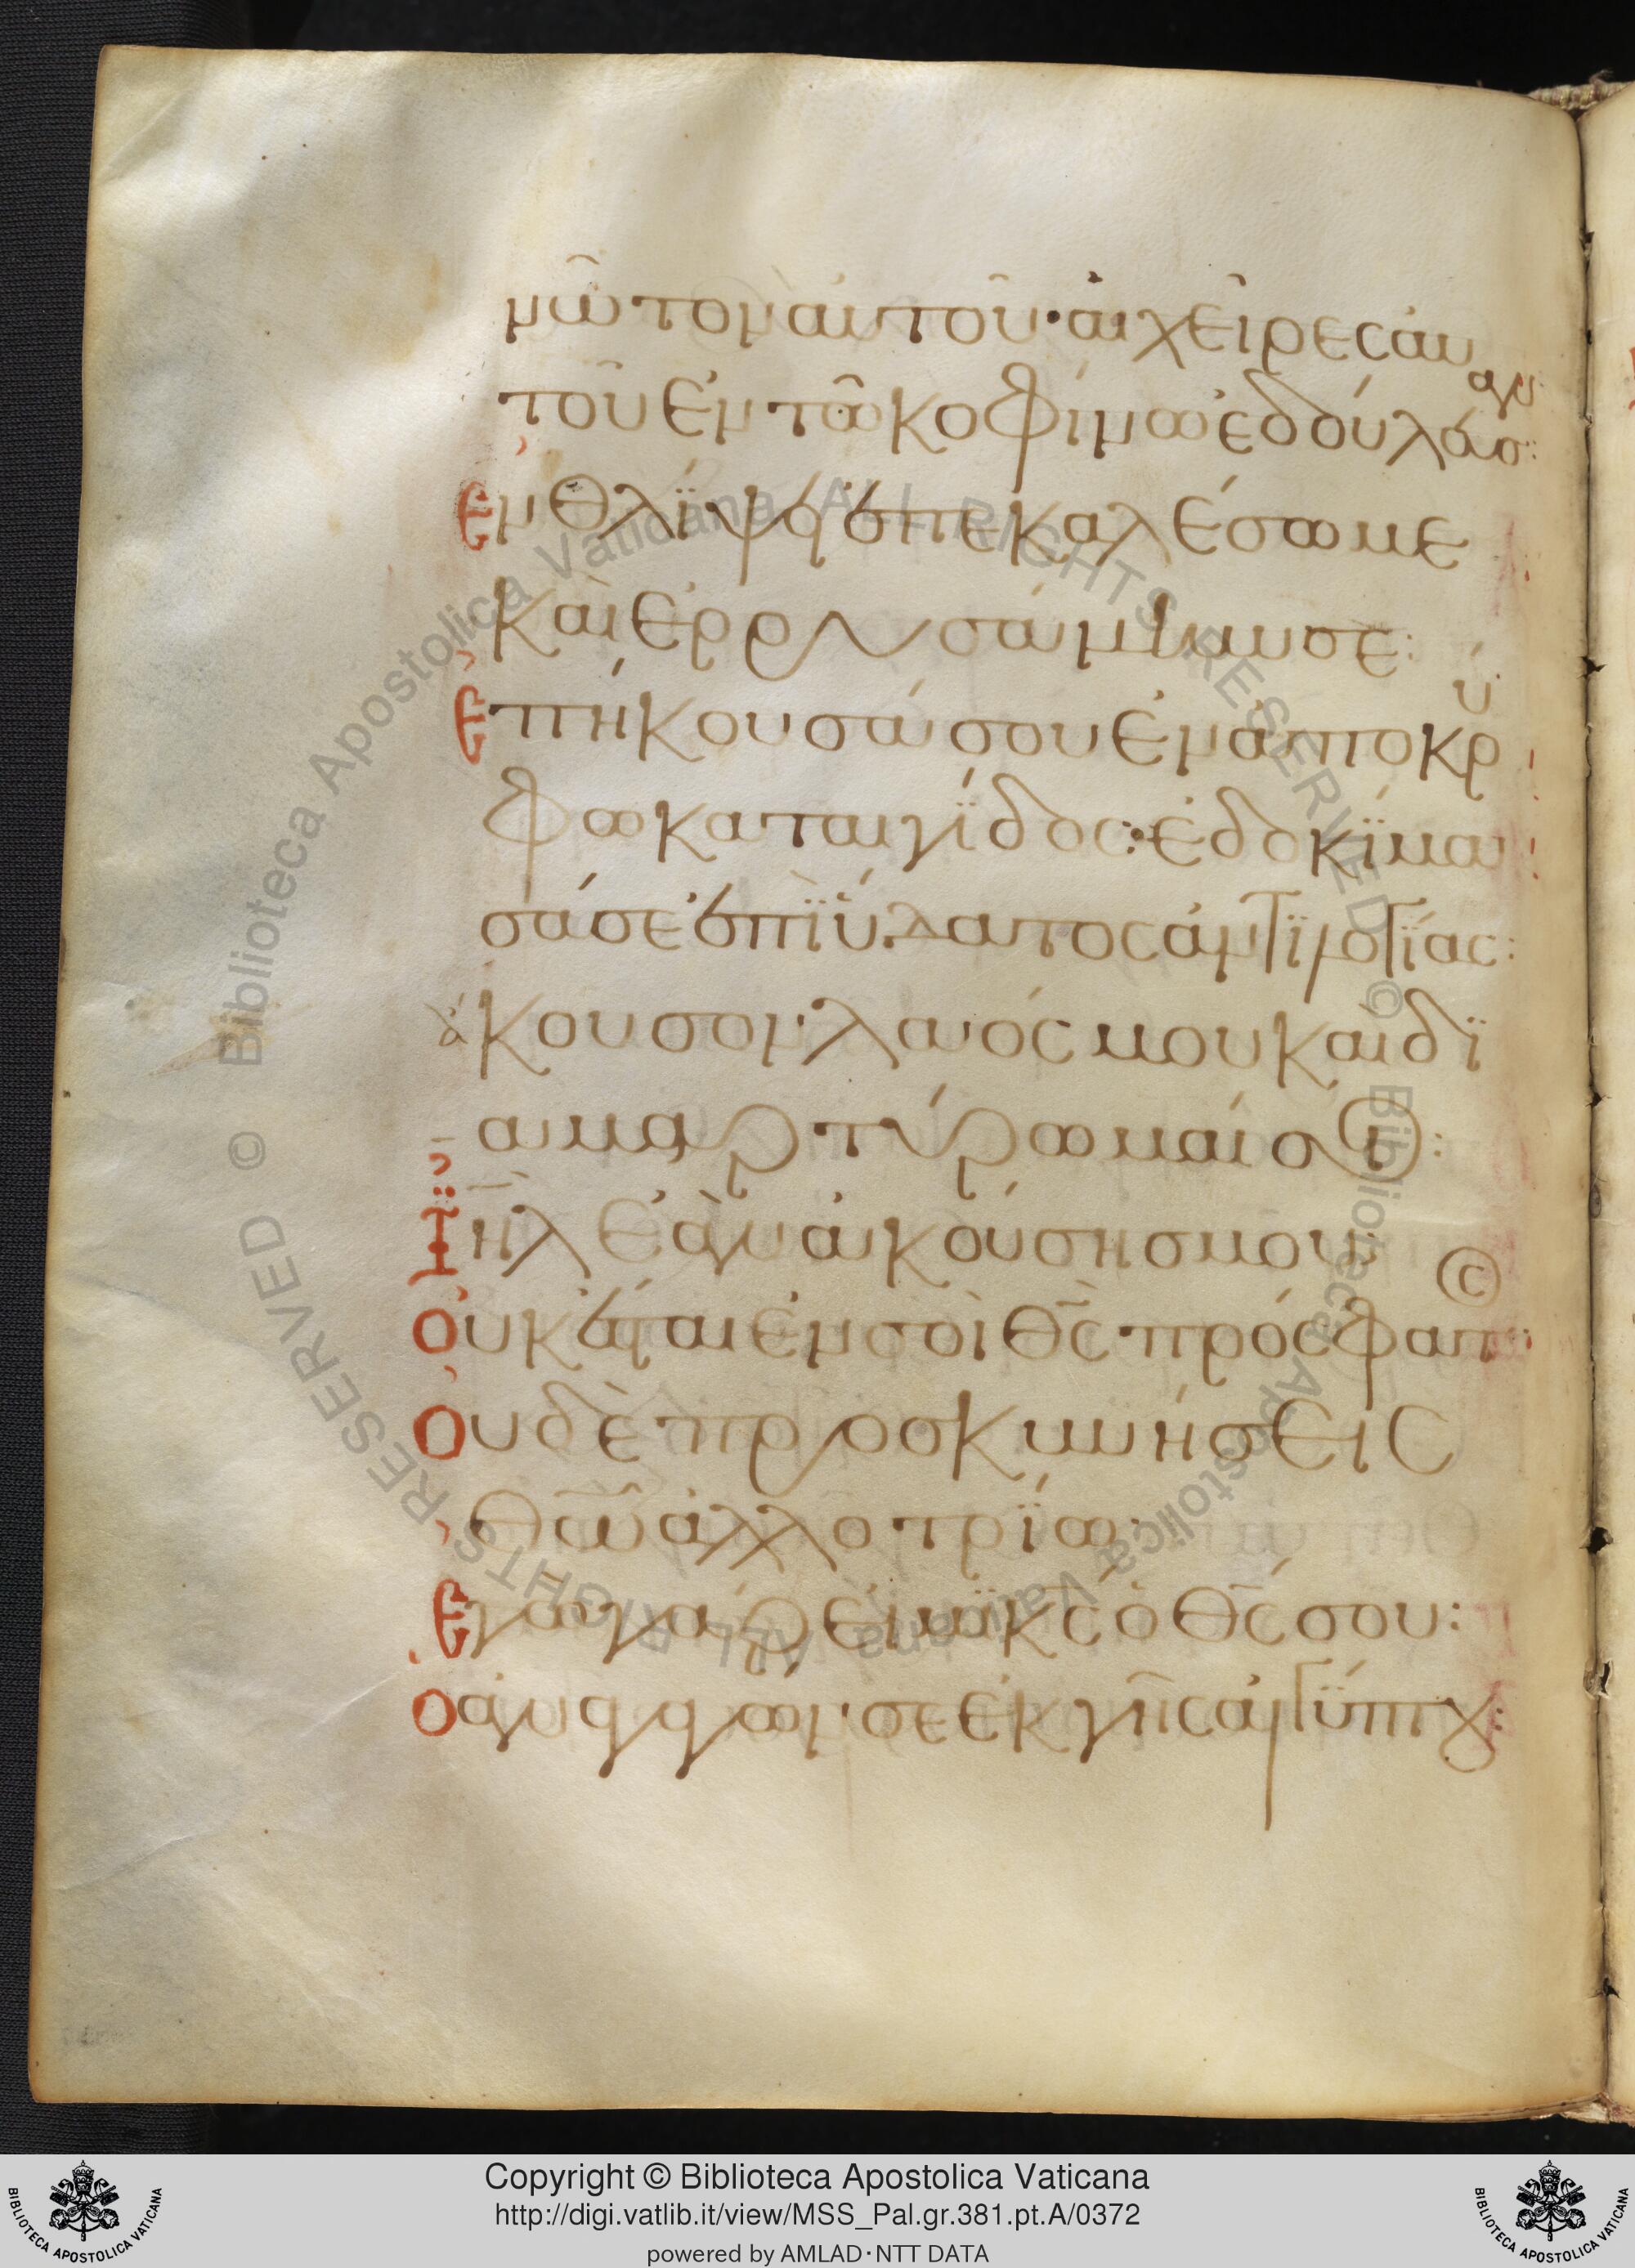 νῶτον αὐτοῦ· αἱ χεῖρες αὐ
τοῦ ἐν τῶ κοφίνω ἐδούλευσαν:
Εν θλΐψει ἐπεκαλέσω με
καὶ ἐρρυσάμην σε:
Επήκουσά σου ἐν ἀποκρύ
φω καταιγΐδος: ἐδοκΐμα
σά σε ἐπὶ ὕδατος ἀντϊλογΐας:
ἄκουσον λαός μου καὶ δϊ
αμαρτύρωμαί σοι:
Ϊηλ ἐὰν ἀκούσης μου
Οὐκ ἔσται ἐν σοὶ θς πρόσφατ
Οὐδὲ προσκυνήσεις
θῶ ἀλλοτρΐω:
Εγὼ γάρ εἰμϊ κς ὁ θς σου:
Ο ἀναγαγών σε ἐκ γῆς αἰγύπτου:
Copyright © Biblioteca Apostolica Vaticana
http://digi.vatlib.it/view/MSS_Pal.gr.381.pt.A/0372
powered by AMLAD·NTT DATA
BIBLIOTECA APOSTOLICA VATICANA
BIBLIOTECA APOSTOLICA VATICANA